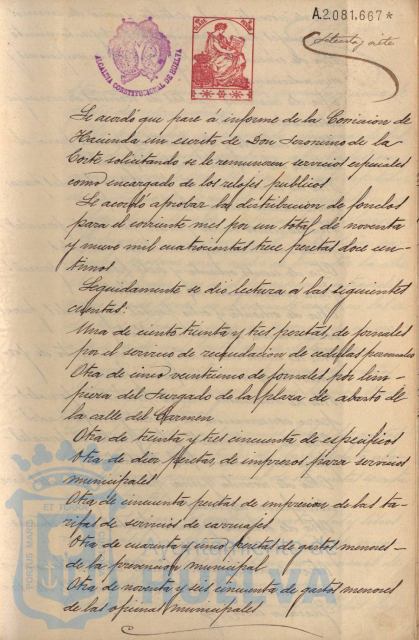 A.2.081.667*
Setenta y siete
ALCALDIA CONSTITUCIONAL DE HUELVA
Se acordó que pase á informe de la Comision de
Hacienda un escrito de Don Jeronimo de la
Corte solicitando se le remuneren servicios especiales
como encargado de los relojes publicos
Se acordó aprobar la distribucion de fondos
para el corriente mes por un total de noventa
y nueve mil cuatrocientas trece pesetas doce cen-
timos
Seguidamente se dio lectura á las siguientes
cuentas:
Una de ciento treinta y tres pesetas, de jornales
por el servicio de recaudacion de cedulas personales
Otra de cinco veinticinco de jornales por lim-
pieza del Juzgado de la plaza de abasto de
la calle del Carmen
Otra de treinta y tres cincuenta de especificos
Otra de diez pesetas, de impresos para servicios
municipales
Otra de cincuenta pesetas de impresion de las ta-
rifas de servicios de carruajes
Otra de cuarenta y cinco pesetas de gastos menores
de la prevencion municipal
Otra de noventa y seis cincuenta de gastos menores
de las oficinas municipales
PORTUS MARIS ET TERRAE
HUELVA